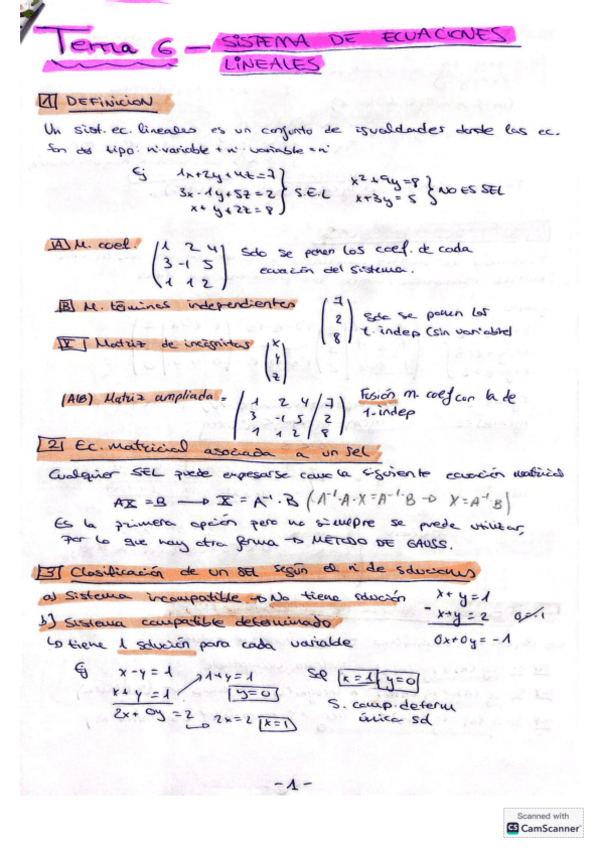 Tema 6 – SISTEMA DE ECUACIONES
LINEALES
1 DEFINICION
Un sist. ec. lineales es un conjunto de igualdades donde las ec.
Son del tipo: nº variable + nº variable = nº
Ej 1x+2y+4z=7
3x-1y+5z=2 } S.E.L
x+y+2z=8
x²+9y=8
x+3y=5 } NO ES SEL
A M. coef. (1 2 4
3 -1 5
1 1 2) Solo se ponen los coef. de cada
ecuación del sistema.
B M. términos independientes (7
2
8) Solo se ponen los
t. indep (sin variable)
X Matriz de incógnitas (x
y
z)
(A|B) Matriz ampliada = (1 2 4 / 7
3 -1 5 / 2
1 1 2 / 8) Fusión m. coef con la de
t-indep
2 Ec. Matricial asociada a un Sel
Cualquier SEL puede expresarse como la siguiente ecuación matricial
AX = B → X = A⁻¹ · B (A⁻¹·A·X = A⁻¹·B → X = A⁻¹·B)
Es la primera opción pero no siempre se puede utilizar,
Por lo que hay otra forma → METODO DE GAUSS.
3 Clasificación de un SEL según el nº de soluciones
a) Sistema incompatible → No tiene solución
x+y=1
- x+y=2
0x+0y=-1
b) Sistema compatible determinado
↳ tiene 1 solución para cada variable
Ej x-y=1
x+y=1
2x+0y=2
2x=2 x=1
1+y=1
y=0
Sol x=1 y=0
S. comp. determ
única sol
-1-
Scanned with
CS CamScanner